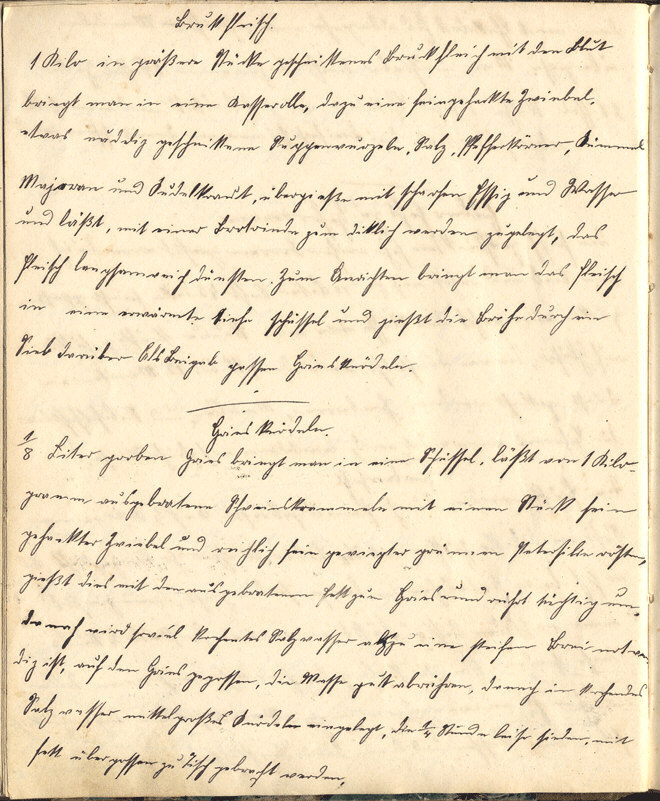 Bruckfleisch.
1 Kilo in größere Stücke geschnittenes Bruckfleisch mit den Blut
bringt man in eine Kasserolle, dazu eine feingehackte Zwiebel,
etwas nudlig geschnittene Suppenwurzeln, Salz, Pfefferkörner, Kümmel
Majoran und Kudelkraut, übergieße mit scharfen Essig und Wasser
und läßt, mit einer Brotrinde zum diklich werden zugelegt, das
Fleisch langsam weich dünsten. Zum Anrichten bringt man das Fleisch
in eine erwärmte tiefe Schüssel und gießt die Brühe durch ein
Sieb darüber. Als Beigab passen Griesknödeln.
Griesknödeln.
1/8 Liter groben Gries bringt man in eine Schüssel, läßt von 1 Kilo-
gramm ausgebratene Schweinskrammeln mit einem Stück fein
gehackter Zwiebel und reichlich fein gewiegter grünen Petersilie rösten,
gießt dies mit den ausgebratenen Fett zum Gries und rührt tüchtig um,
danach wird soviel kochentes Salzwasser als zu eine steifen Brei notwen-
dig ist, auf den Gries gegossen, die Masse gutt abrühren, danach in kochendes
Salzwasser mittelgroßes Knödeln eingelegt, die 1/4 Stunde leise sieden, mit
Fett übergossen zu Tisch gebracht werden.